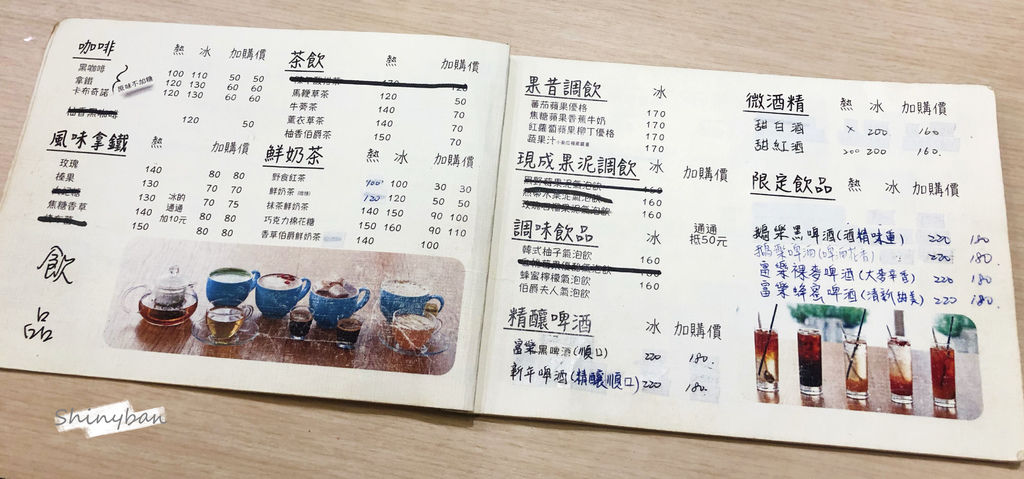 咖啡 熱 冰 加購價
黑咖啡 100 110 50 50
拿鐵 120 130 60 60
卡布奇諾 120 130 60 60
原味不加糖
柚香黑咖啡 120 50
風味拿鐵 熱 冰 加購價
玫瑰 140 80 80
榛果 130 70 70
130 70 75
焦糖香草 140 80 80
150 80 80
冰的
通通
加10元
飲
品
茶飲 熱 加購價
170 120
馬鞭草茶 120 50
牛蒡茶 140 70
薰衣草茶 140 70
柚香伯爵茶 150 70
鮮奶茶 熱 冰 加購價
野食紅茶 100 100 30 30
鮮奶茶 120 120 50 50
抹茶鮮奶茶 140 150 90 100
巧克力棉花糖 150 160 90 110
香草伯爵鮮奶茶 140 100
Shinyban
果昔調飲 冰
蕃茄蘋果優格 170
焦糖蘋果香蕉牛奶 170
紅蘿蔔蘋果柳丁優格 170
蔬果汁 170
現成果泥調飲 冰 加購價
160
熱帶水果泥氣泡飲 160
160
調味飲品 冰 通通
抵50元
韓式柚子氣泡飲 160
160
蜂蜜檸檬氣泡飲 160
伯爵夫人氣泡飲
精釀啤酒 冰 加購價
富樂黑啤酒(順口) 220 180.
新年啤酒(精釀順口) 220 180.
微酒精 熱 冰 加購價
甜白酒 x 200 160.
甜紅酒 200 200 160.
限定飲品 熱 冰 加購價
鵝樂黑啤酒(酒精味重) 220 180
鵝樂啤酒(啤酒花香) 220 180.
富樂裸麥啤酒(大麥辛香) 220 180.
富樂蜂蜜啤酒(清新甜美) 220 180.